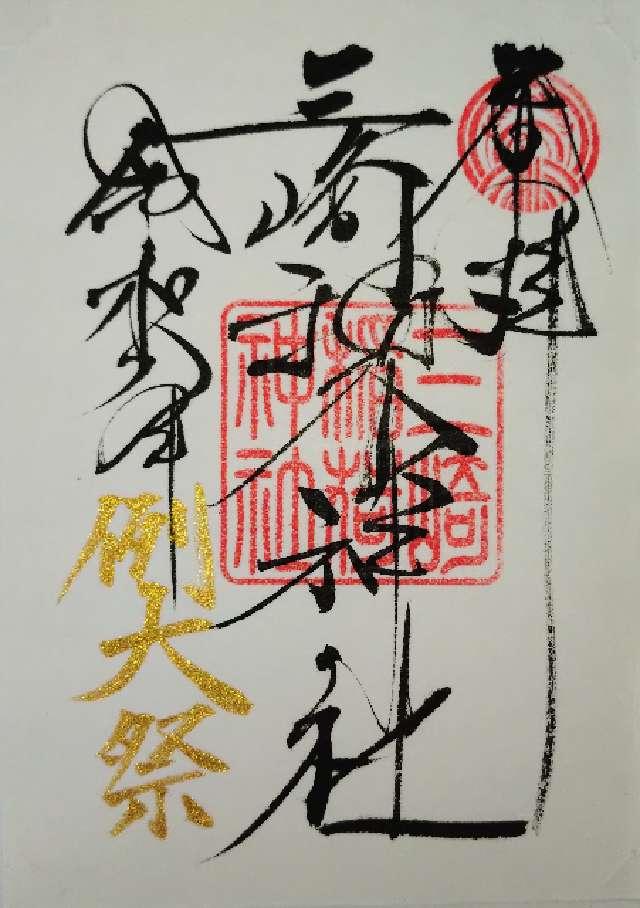 奉拝
三崎稲荷神社
三崎稲荷神社
例大祭